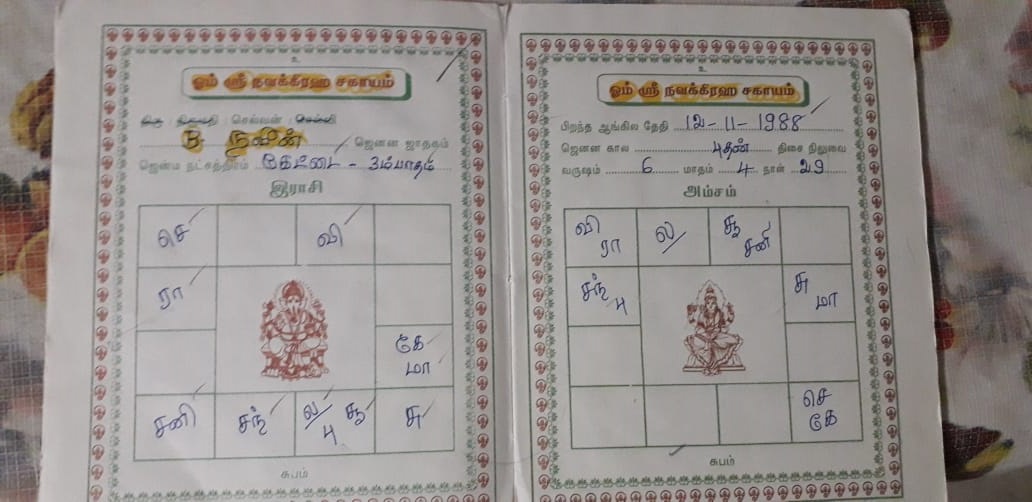 உ
ஓம் ஸ்ரீ நவக்கிரஹ சகாயம்
திரு திருமதி செல்வன் செல்வி
B நவீன் ஜெனன ஜாதகம்
ஜென்ம நட்சத்திரம் கேட்டை - 3ம்பாதம்
இராசி
செ வி
ரா
கே
மா
சனி சந் ல/ பு சூ சு
சுபம்
உ
ஓம் ஸ்ரீ நவக்கிரஹ சகாயம்
பிறந்த ஆங்கில தேதி 12-11-1988
ஜெனன கால புதன் திசை நிலுவை
வருஷம் 6 மாதம் 4 நாள் 29
அம்சம்
வி ரா ல/ சூ சனி
சந் பு சு மா
செ
கே
சுபம்